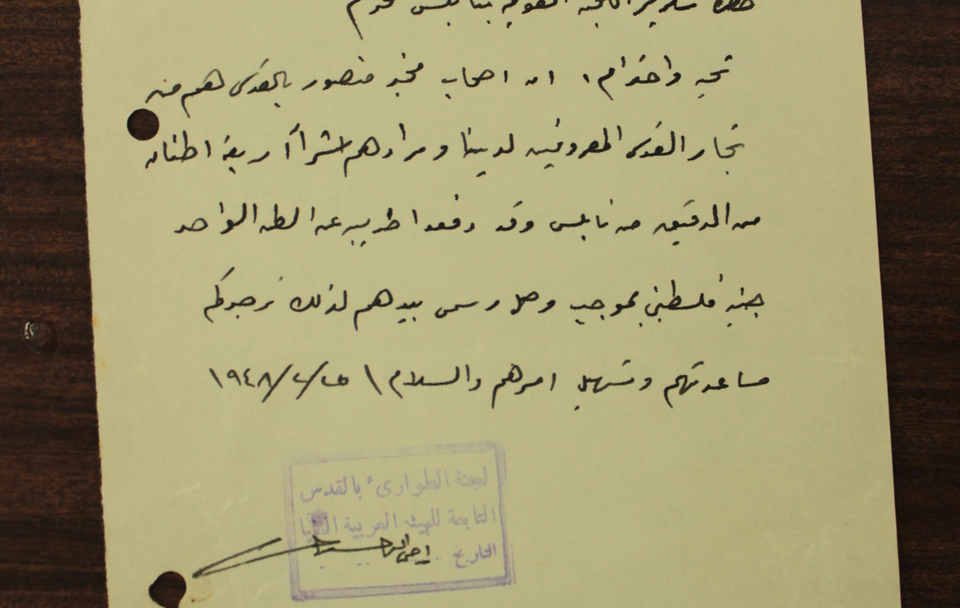 حضرة سكرتير اللجنة القومية بنابلس المحترم
تحية واحترام، ان اصحاب مخبز منصور بالقدس هم من
تجار القدس المعروفين لدينا ومرادهم شراء أربعة اطنان
من الدقيق من نابلس وقد دفعوا ضريبة عن الطن الواحد
جنيه فلسطيني بموجب وصل رسمي بيدهم لذلك نرجوكم
مساعدتهم وتسهيل امرهم والسلام \ ٢٥/٢/١٩٤٨
لجنة الطوارىء بالقدس
التابعة للهيئة العربية العليا
التاريخ